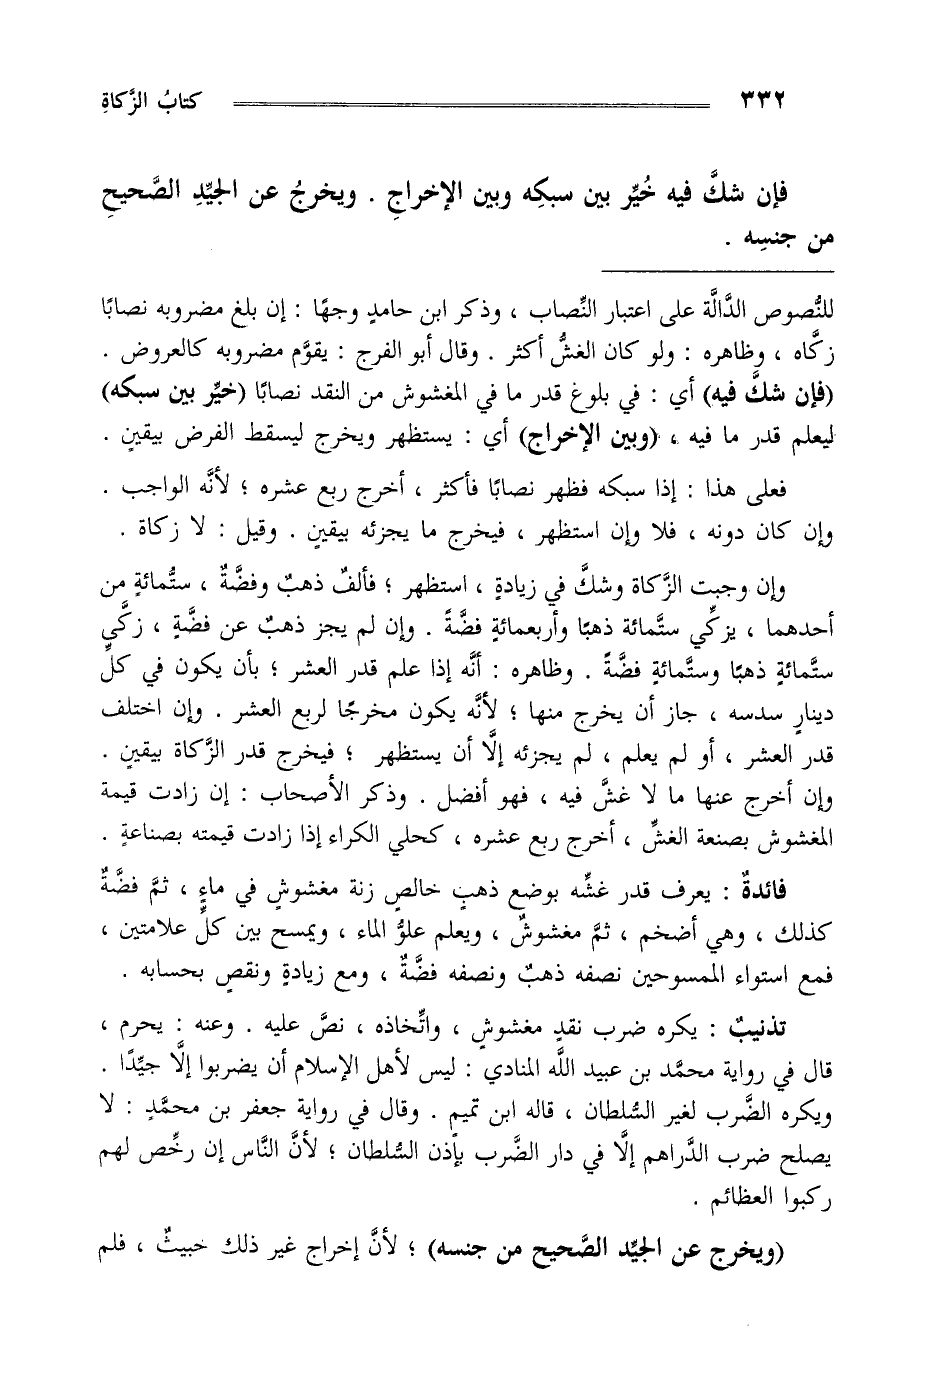 ٣٣٢ كتابُ الزَّكاةِ
فإن شكَّ فيه خُيِّر بين سبكِه وبين الإخراجِ . ويخرجُ عن الجيِّدِ الصَّحيحِ
من جنسِه .
للنُّصوص الدَّالَّة على اعتبار النِّصاب ، وذكر ابن حامدٍ وجهًا : إن بلغ مضروبه نصابًا
زكَّاه ، وظاهره : ولو كان الغشُّ أكثر . وقال أبو الفرج : يقوَّم مضروبه كالعروض .
(فإن شكَّ فيه) أي : في بلوغ قدر ما في المغشوش من النقد نصابًا (خيِّر بين سبكه)
ليعلم قدر ما فيه ، (وبين الإخراج) أي : يستظهر ويخرج ليسقط الفرض بيقينٍ .
فعلى هذا : إذا سبكه فظهر نصابًا فأكثر ، أخرج ربع عشره ؛ لأنَّه الواجب .
وإن كان دونه ، فلا وإن استظهر ، فيخرج ما يجزئه بيقينٍ . وقيل : لا زكاة .
وإن وجبت الزَّكاة وشكَّ في زيادةٍ ، استظهر ؛ فألفٌ ذهبٌ وفضَّةٌ ، ستُّمائةٍ من
أحدهما ، يزكِّي ستَّمائة ذهبًا وأربعمائةٍ فضَّةً . وإن لم يجز ذهبٌ عن فضَّةٍ ، زكَّى
ستَّمائةٍ ذهبًا وستَّمائةٍ فضَّةً . وظاهره : أنَّه إذا علم قدر العشر ؛ بأن يكون في كلِّ
دينارٍ سدسه ، جاز أن يخرج منها ؛ لأنَّه يكون مخرجًا لربع العشر . وإن اختلف
قدر العشر ، أو لم يعلم ، لم يجزئه إلَّا أن يستظهر ؛ فيخرج قدر الزَّكاة بيقينٍ .
وإن أخرج عنها ما لا غشَّ فيه ، فهو أفضل . وذكر الأصحاب : إن زادت قيمة
المغشوش بصنعة الغشِّ ، أخرج ربع عشره ، كحلي الكراء إذا زادت قيمته بصناعةٍ .
فائدةٌ : يعرف قدر غشِّه بوضع ذهبٍ خالصٍ زنة مغشوشٍ في ماءٍ ، ثمَّ فضَّةٌ
كذلك ، وهي أضخم ، ثمَّ مغشوشٌ ، ويعلم علوُّ الماء ، ويمسح بين كلِّ علامتين ،
فمع استواء الممسوحين نصفه ذهبٌ ونصفه فضَّةٌ ، ومع زيادةٍ ونقصٍ بحسابه .
تذنيبٌ : يكره ضرب نقدٍ مغشوشٍ ، واتِّخاذه ، نصَّ عليه . وعنه : يحرم ،
قال في رواية محمَّد بن عبيد اللَّه المنادي : ليس لأهل الإسلام أن يضربوا إلَّا جيِّدًا .
ويكره الضَّرب لغير السُّلطان ، قاله ابن تميمٍ . وقال في رواية جعفر بن محمَّدٍ : لا
يصلح ضرب الدَّراهم إلَّا في دار الضَّرب بإذن السُّلطان ؛ لأنَّ النَّاس إن رخِّص لهم
ركبوا العظائم .
(ويخرج عن الجيِّد الصَّحيح من جنسه) ؛ لأنَّ إخراج غير ذلك خبيثٌ ، فلم